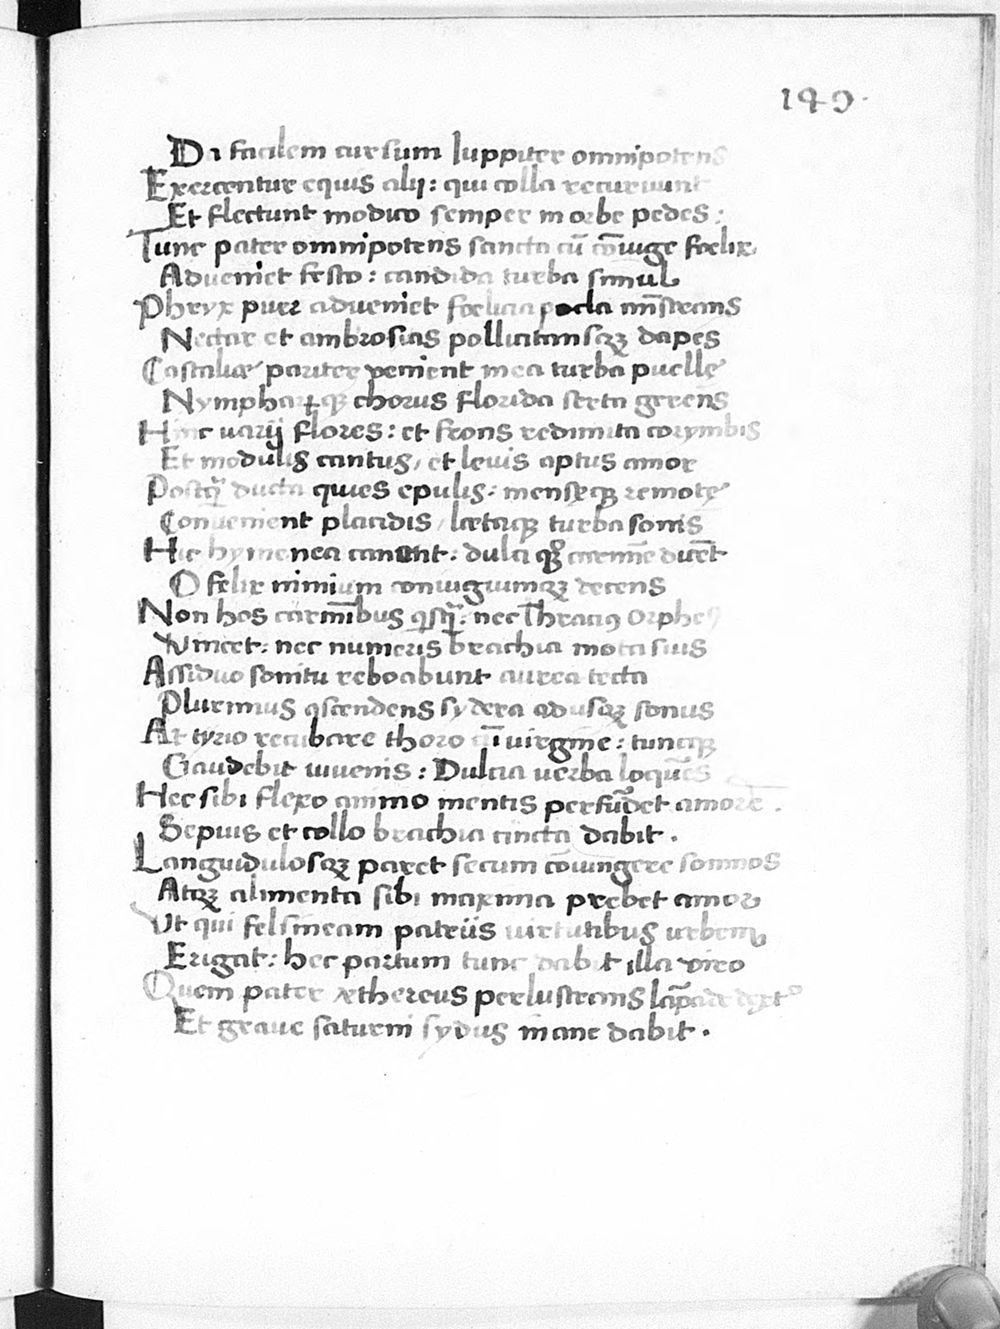 149.
Da facilem cursum Iuppiter omnipotens
Exercentur equis alij: qui colla recuruunt
Et flectunt modico semper in orbe pedes:
Tunc pater omnipotens sancta cū cōiuge foelix
Adueniet festo: candida turba simul
Phryx puer adueniet foelicia pocla mīstrans
Nectar et ambrosias pollicitansqꝫ dapes
Castaliae pariter venient mea turba puellę
Nymphaꝝqꝫ chorus florida serta gerens
Hinc uarij flores: et frons redimita corymbis
Et modulis cantus, et leuis aptus amor
Postq̃ ducta quies epulis: mensęqꝫ remotę
Conuenient placidis, laetaqꝫ turba sonis
Hic hymenea canent: dulci qꝫ carmīe dicēt
O felix nimium coniugiumqꝫ decens
Non hos carmībus qsq̃: nec Thracius Orpheꝰ
Vincet: nec numeris brachia mota suis
Assiduo sonitu reboabunt aurea tecta
Plurimus ascendens sydera adusqꝫ sonus
At tyrio recubare thoro cū uirgine: tuncqꝫ
Gaudebit iuuenis: Dulcia uerba loquēs
Hec sibi flexo animo mentis perfūdet amore.
Sepius et collo brachia cincta dabit.
Languidulosqꝫ paret secum cōiungere somnos
Atqꝫ alimenta sibi maxima prębet amor
Vt qui felsineam patriis uirtutibus urbem
Erigat: hec partum tunc dabit illa viro
Quem pater aethereus perlustrans lāpade
Et graue saturni sydus inane dabit.